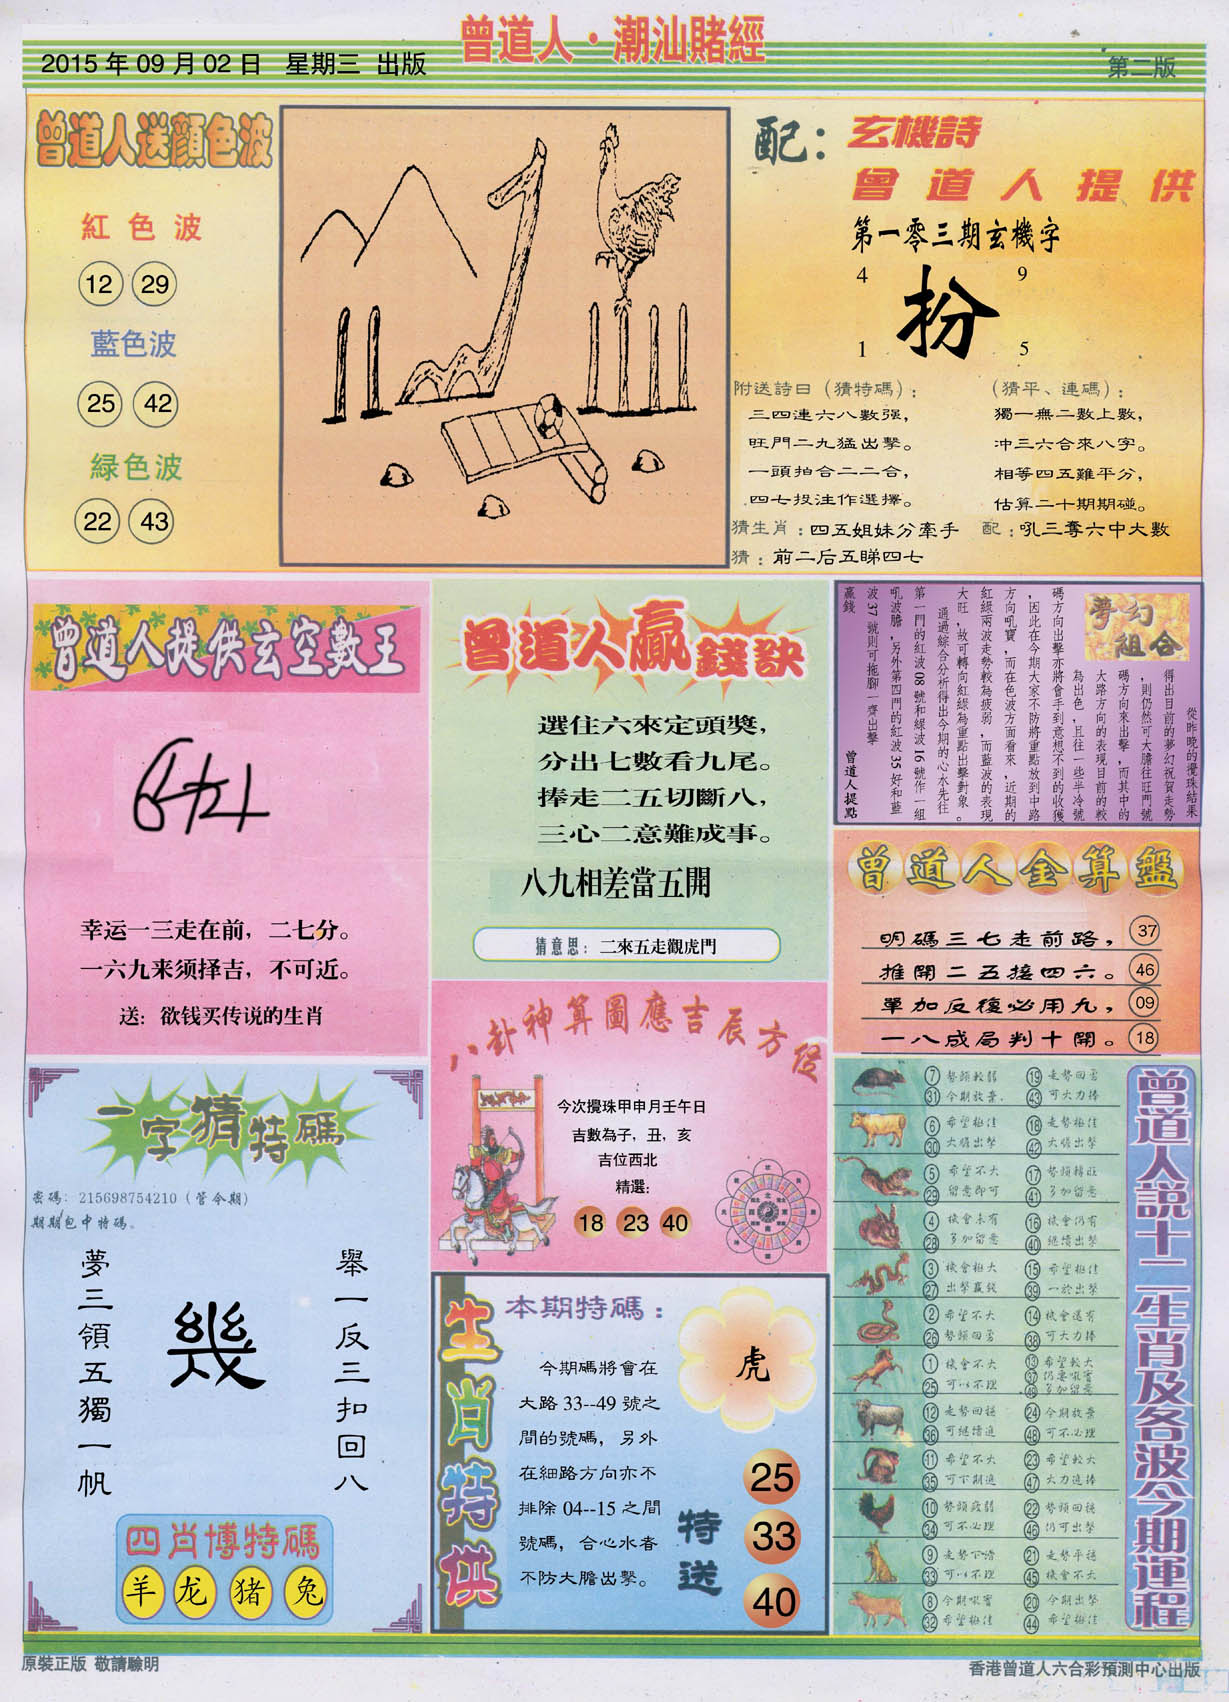 曾道人·潮汕賭經
2015 年 09 月 02 日 星期三 出版
第二版
曾道人送顏色波
紅色波
12 29
藍色波
25 42
緑色波
22 43
配：玄機詩
曾道人提供
第一零三期玄機字
4 9
扮
1 5
附送詩日（猜特碼）：
三四連六八數强，
旺門二九猛出擊。
一頭拍合二二合，
四七投注作選擇。
（猜平、連碼）：
獨一無二數上數，
冲三六合來八字。
相等四五難平分，
估算二十期期碰。
猜生肖：四五姐妹分牽手
配：吼三奪六中大數
猜：前二后五睇四七
曾道人提供玄空數王
幸运一三走在前，二七分。
一六九来须择吉，不可近。
送：欲钱买传说的生肖
曾道人贏錢訣
選住六來定頭獎，
分出七數看九尾。
捧走二五切斷八，
三心二意難成事。
八九相差當五開
猜意思：二來五走觀虎門
夢幻組合
從昨晚的攪珠結果
得出目前的夢幻祝賀走勢
，則仍然可大膽往旺門號
碼方向來出擊，而其中的
大路方向的表現目前的較
為出色，且往一些半冷號
碼方向出擊亦將會手到意想不到的收獲
，因此在今期大家不防將重點放到中路
方向吼寶，而在色波方面看來，近期的
紅緑兩波走勢較為疲弱，而藍波的表現
大旺，故可轉向紅緑為重點出擊對象。
通過綜合分析得出今期的心水先往
第一門的紅波 08 號和緑波 16 號作一組
吼波膽，另外第四門的紅波 35 好和藍
波 37 號則可拖腳一齊出擊
贏錢
曾道人提點
曾道人金算盤
明碼三七走前路， 37
推開二五接四六。 46
單加反復必用九， 09
一八成局判十開。 18
八卦神算圖應吉辰方位
今次攪珠甲申月壬午日
吉數為子，丑，亥
吉位西北
精選：
18 23 40
一字猜特碼
密碼：215698754210（管今期）
期期包中特碼。
舉一反三扣回八
幾
夢三領五獨一帆
四肖博特碼
羊 龙 猪 兔
生肖特供
本期特碼：
今期碼將會在
大路 33--49 號之
間的號碼，另外
在細路方向亦不
排除 04--15 之間
號碼，合心水者
不防大膽出擊。
虎
特送
25
33
40
曾道人説十二生肖及各波今期運程
7 勢頭較弱 19 走勢回勇
31 今期放棄 43 可大力捧
6 希望極佳 18 走勢極佳
30 大膽出擊 42 大膽出擊
5 希望不大 17 勢頭轉旺
29 留意即可 41 多加留意
4 機會未有 16 機會仍有
28 多加留意 40 繼續出擊
3 機會極大 15 希望極佳
27 出擊贏錢 39 一於出擊
2 希望不大 14 機會還有
26 勢頭回勇 38 可大力捧
1 機會不大 13 希望較大
25 可以不理 37 仍要吸實
49 多加留意
12 走勢回穩 24 今期放棄
36 可繼續追 48 可不必理
11 希望不大 23 希望較大
35 可下期追 47 大力追捧
10 勢頭疲弱 22 勢頭回穩
34 可不必理 46 仍可出擊
9 走勢下滑 21 走勢平穩
33 可以不理 45 機會不大
8 今期吸實 20 今期出擊
32 希望極佳 44 希望極佳
原裝正版 敬請驗明
香港曾道人六合彩預測中心出版